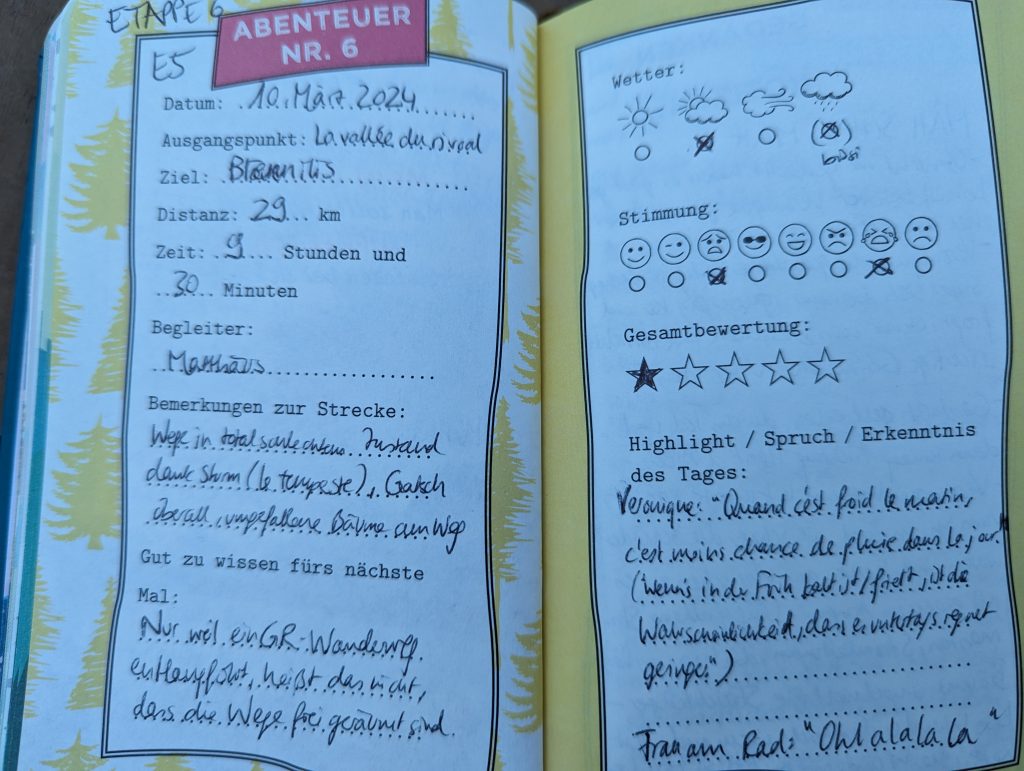 ETAPPE 6
ABENTEUER
NR. 6
E5
Datum: 10. März 2024
Ausgangspunkt: La vallée du
Ziel:
Distanz: 29 km
Zeit: 9 Stunden und
30 Minuten
Begleiter:
Matthäus
Bemerkungen zur Strecke:
Wege in total schlechtem Zustand
dank Sturm (le tempeste), Gatsch
überall, umgefallene Bäume am Weg
Gut zu wissen fürs nächste
Mal:
Nur weil ein GR-Wanderweg
entlangführt, heißt das nicht,
dass die Wege frei geräumt sind.
Wetter:
Stimmung:
Gesamtbewertung:
Highlight / Spruch / Erkenntnis
des Tages:
Veronique: "Quand c'est froid le matin,
c'est moins chance de pluie dans la jour"
(Wenn's in der Früh kalt ist/friert, ist die
Wahrscheinlichkeit, dass es untertags regnet
geringer")
Frau am Rad: "Oh lalalala"